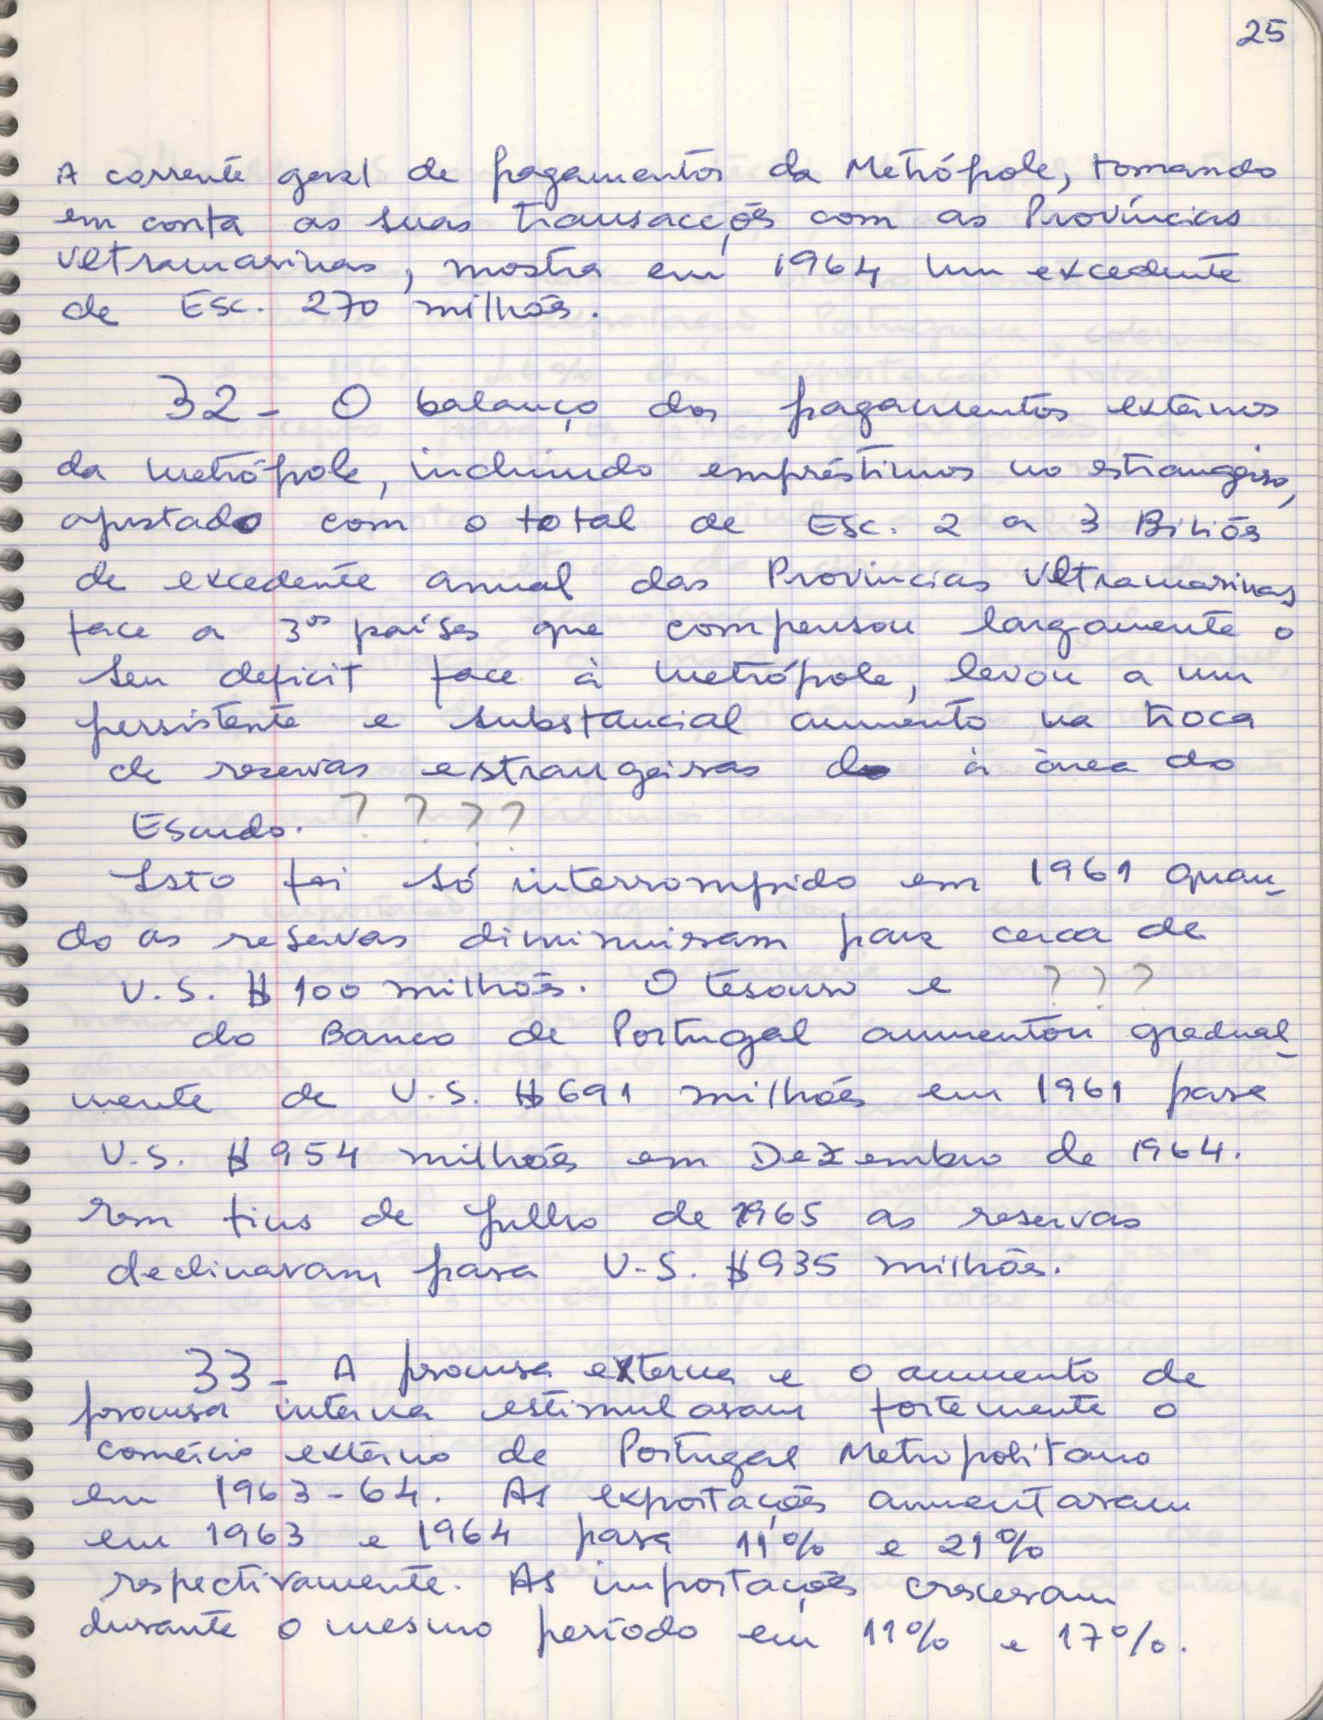 25
A corrente geral de pagamentos da Metrópole, tomando
em conta as suas transacções com as Províncias
Ultramarinas, mostra em 1964 um excedente
de Esc. 270 milhões.
32- O balanço dos pagamentos externos
da metrópole, incluindo empréstimos no estrangeiro,
ajustado com o total de Esc. 2 a 3 Biliões
de excedente anual das Províncias Ultramarinas
face a 3os países que compensou largamente o
seu deficit face à metrópole, levou a um
persistente e substancial aumento na troca
de reservas estrangeiras do à área do
Escudo. ? ? ? ?
Isto foi só interrompido em 1961 quan-
do as reservas diminuiram para cerca de
U.S. $ 100 milhões. O tesouro e ? ? ?
do Banco de Portugal aumentou gradual-
mente de U.S. $ 691 milhões em 1961 para
U.S. $ 954 milhões em Dezembro de 1964.
Em fins de Julho de 1965 as reservas
declinaram para U.S. $ 935 milhões.
33- A procura externa e o aumento de
procura interna estimularam fortemente o
comércio externo de Portugal Metropolitano
em 1963-64. As exportações aumentaram
em 1963 e 1964 para 11% e 21%
respectivamente. As importações cresceram
durante o mesmo período em 11% e 17%.